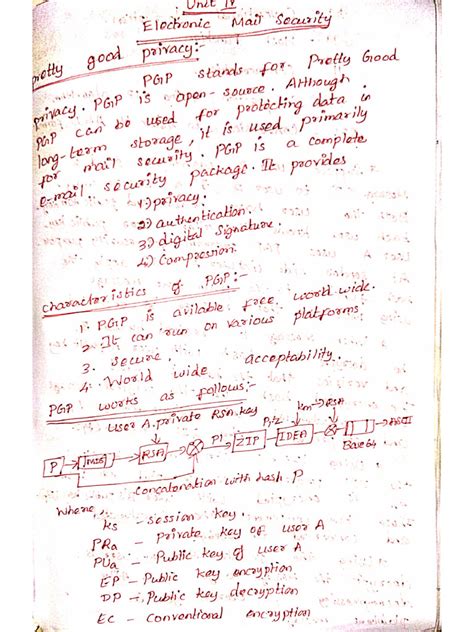 Unit IV
Electronic Mail Security
pretty good privacy:-
PGP stands for Pretty Good
privacy. PGP is open-source. Although
PGP can be used for protecting data in
long-term storage, it is used primarily
for mail security. PGP is a complete
e-mail security package. It provides
1) privacy.
2) authentication.
3) digital Signature.
4) Compression.
characteristics of PGP:-
1. PGP is avilable free world wide.
2. It can run on various platforms.
3. Secure.
4. World wide acceptability.
PGP works as follows:-
User A.private RSA key
km→RSA
P MD5 RSA P1 ZIP IDEA Base64 ASCII
Concatenation with hash P
Where,
ks - session key.
PRa - private key of user A
PUa - Public key of user A
EP - Public key encryption
DP - Public key decryption
EC - Conventional encryption